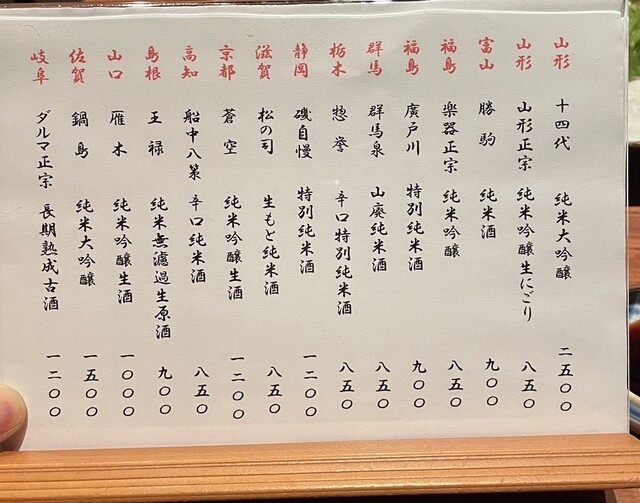 山形 十四代 純米大吟醸 二五〇〇
山形 山形正宗 純米吟醸生にごり 八五〇
富山 勝駒 純米酒 九〇〇
福島 楽器正宗 純米吟醸 八五〇
福島 廣戸川 特別純米酒 九〇〇
群馬 群馬泉 山廃純米酒 八五〇
栃木 惣誉 辛口特別純米酒 八五〇
静岡 磯自慢 特別純米酒 一二〇〇
滋賀 松の司 生もと純米酒 八五〇
京都 蒼空 純米吟醸生酒 一二〇〇
高知 船中八策 辛口純米酒 八五〇
島根 王禄 純米無濾過生原酒 九〇〇
山口 雁木 純米吟醸生酒 一〇〇〇
佐賀 鍋島 純米大吟醸 一五〇〇
岐阜 ダルマ正宗 長期熟成古酒 一二〇〇